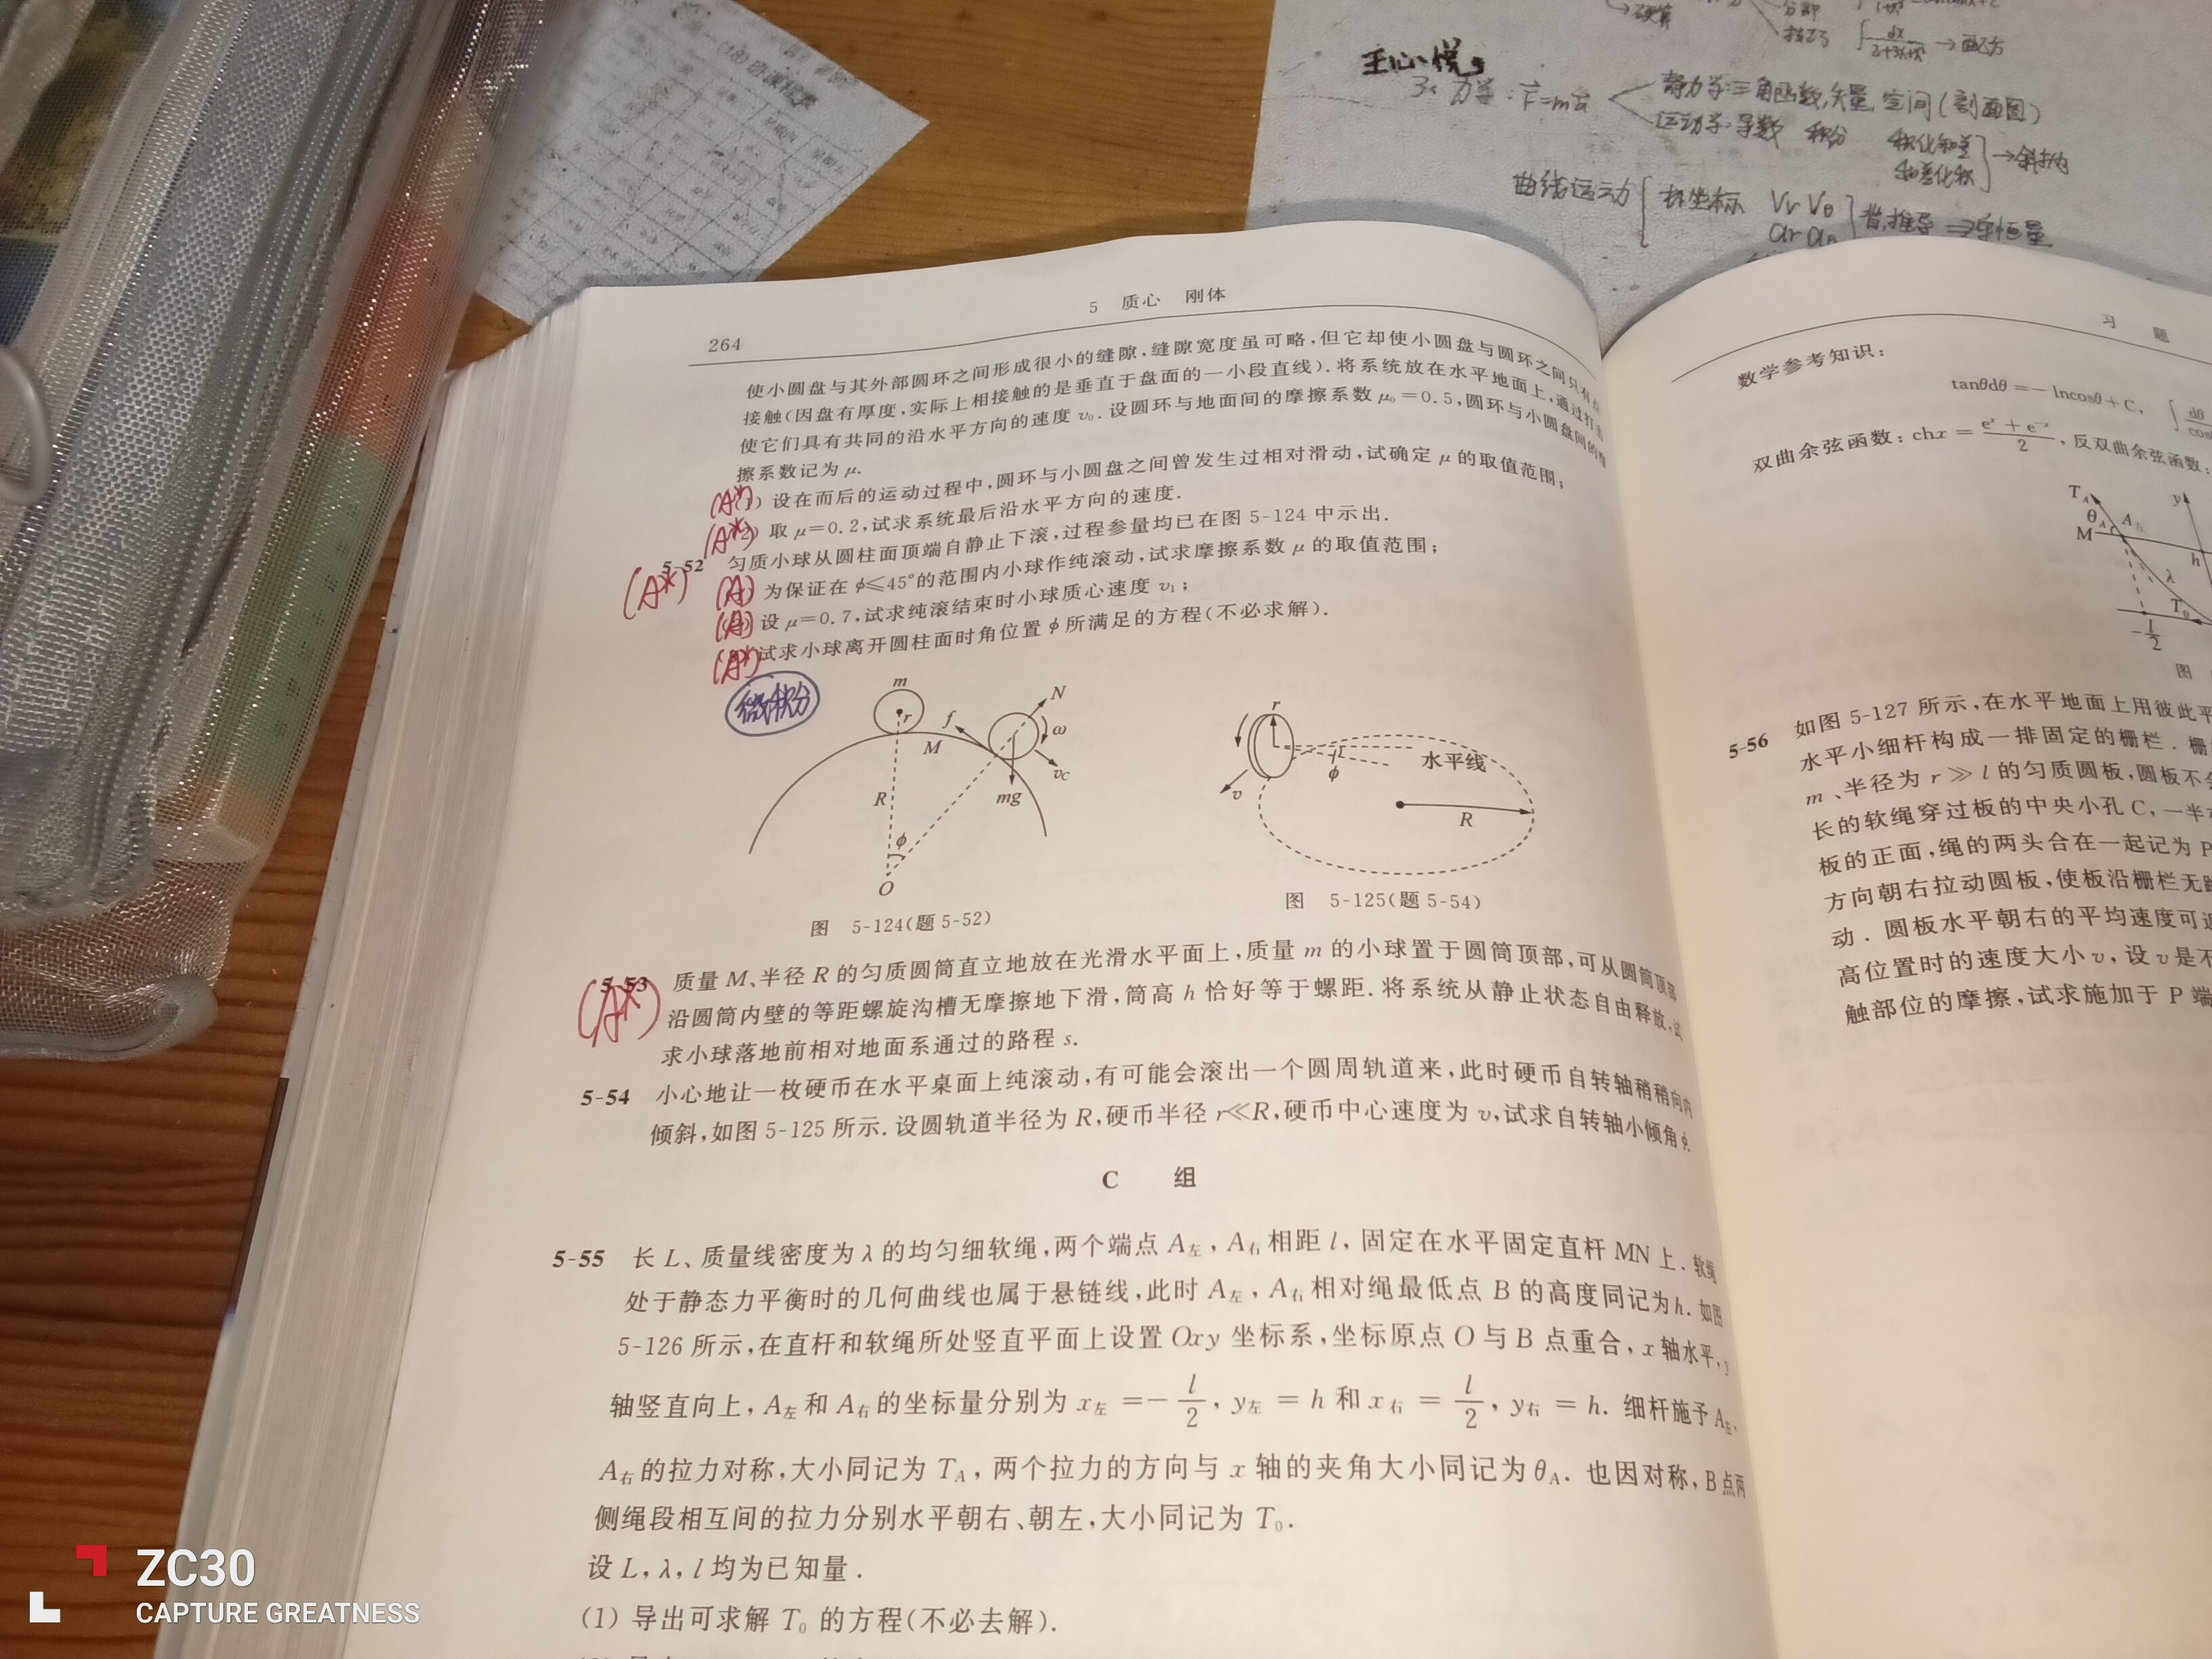 王心悦
力学: F=ma
静力学:三角函数,矢量,空间(剖面图)
运动学:导数 积分 积化和差
和差化积
曲线运动
坐标 Vr Vθ
→配方
264
5 质心 刚体
使小圆盘与其外部圆环之间形成很小的缝隙,缝隙宽度虽可略,但它却使小圆盘与圆环之间只有
接触(因盘有厚度,实际上相接触的是垂直于盘面的一小段直线).将系统放在水平地面上,通过打击
使它们具有共同的沿水平方向的速度 v₀.设圆环与地面间的摩擦系数 μ₀=0.5,圆环与小圆盘间的摩
擦系数记为 μ.
(A*) 设在而后的运动过程中,圆环与小圆盘之间曾发生过相对滑动,试确定 μ 的取值范围;
(A*) 取 μ=0.2,试求系统最后沿水平方向的速度.
(A*) 5-52 匀质小球从圆柱面顶端自静止下滚,过程参量均已在图 5-124 中示出.
(A) 为保证在 φ≤45°的范围内小球作纯滚动,试求摩擦系数 μ 的取值范围;
(A) 设 μ=0.7,试求纯滚结束时小球质心速度 v₁;
(A*) 试求小球离开圆柱面时角位置 φ 所满足的方程(不必求解).
微积分
m
r
f
M
N
ω
v_C
mg
R
φ
O
图 5-124(题 5-52)
r
v
φ
水平线
R
图 5-125(题 5-54)
(A*) 5-53 质量 M、半径 R 的匀质圆筒直立地放在光滑水平面上,质量 m 的小球置于圆筒顶部,可从圆筒顶部
沿圆筒内壁的等距螺旋沟槽无摩擦地下滑,筒高 h 恰好等于螺距.将系统从静止状态自由释放,试
求小球落地前相对地面系通过的路程 s.
5-54 小心地让一枚硬币在水平桌面上纯滚动,有可能会滚出一个圆周轨道来,此时硬币自转轴稍稍向内
倾斜,如图 5-125 所示.设圆轨道半径为 R,硬币半径 r≪R,硬币中心速度为 v,试求自转轴小倾角 φ.
C 组
5-55 长 L、质量线密度为 λ 的均匀细软绳,两个端点 A左,A右相距 l,固定在水平固定直杆 MN 上.软绳
处于静态力平衡时的几何曲线也属于悬链线,此时 A左,A右相对绳最低点 B 的高度同记为 h.如图
5-126 所示,在直杆和软绳所处竖直平面上设置 Oxy 坐标系,坐标原点 O 与 B 点重合,x 轴水平,y
轴竖直向上,A左 和 A右 的坐标量分别为 x左=-l/2,y左=h 和 x右=l/2,y右=h.细杆施予 A左、
A右的拉力对称,大小同记为 T_A,两个拉力的方向与 x 轴的夹角大小同记为 θ_A.也因对称,B点两
侧绳段相互间的拉力分别水平朝右、朝左,大小同记为 T₀.
设 L,λ,l 均为已知量.
(1) 导出可求解 T₀ 的方程(不必去解).
习 题
数学参考知识:
tanθdθ=-lncosθ+C,
双曲余弦函数:chx=(eˣ+e⁻ˣ)/2,反双曲余弦函数:
T_A
θ_A
A左
M
y
h
λ
T₀
-l/2
图
5-56 如图 5-127 所示,在水平地面上用彼此平
水平小细杆构成一排固定的栅栏.栅
m、半径为 r≫l 的匀质圆板,圆板不会
长的软绳穿过板的中央小孔 C,一半
板的正面,绳的两头合在一起记为 P
方向朝右拉动圆板,使板沿栅栏无
动.圆板水平朝右的平均速度可
高位置时的速度大小 v,设 v 是不
触部位的摩擦,试求施加于 P 端
ZC30
CAPTURE GREATNESS